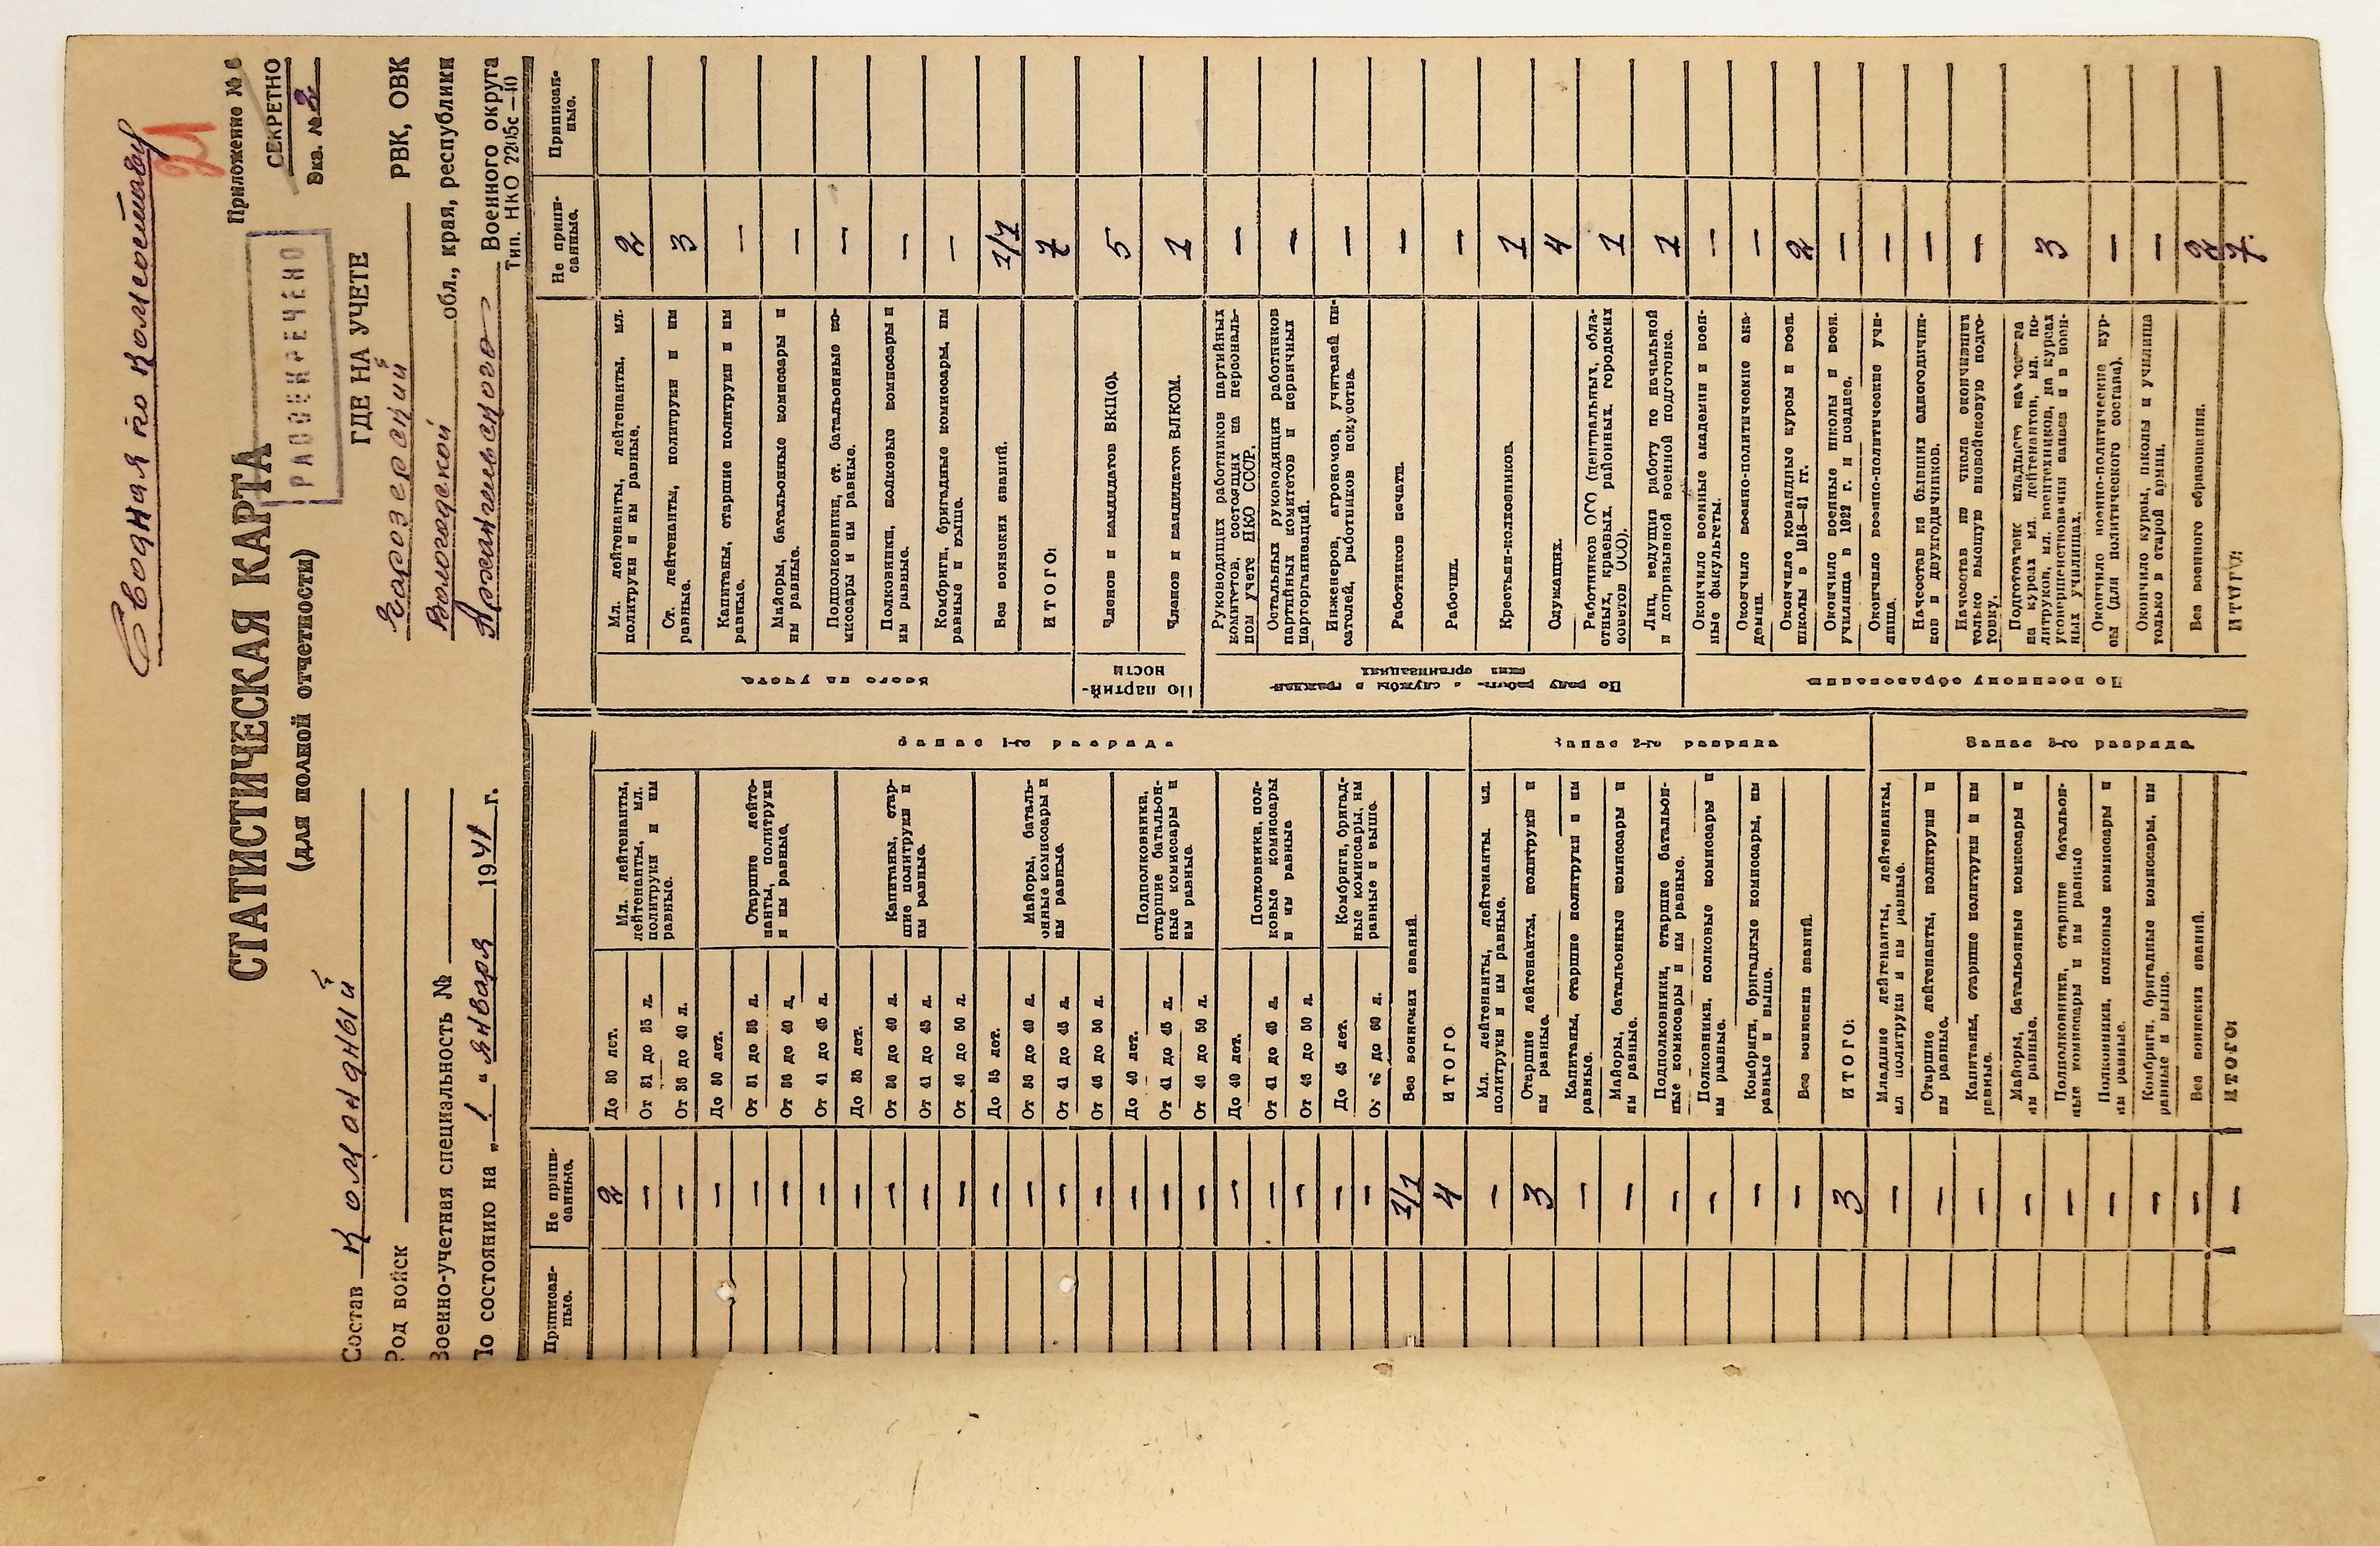 Сводная по комсоставу
21
Приложение №
СЕКРЕТНО
Экз. № 2
СТАТИСТИЧЕСКАЯ КАРТА
(для полной отчетности)
РАССЕКРЕЧЕНО
Состав Командный
Род войск
Военно-учетная специальность №
По состоянию на „1“ января 1941 г.
ГДЕ НА УЧЕТЕ
РВК, ОВК
Вологодской обл., края, республики
Архангельского Военного округа
Тип. НКО 2205с—40
Приписанные.
Не приписанные.
Не приписанные.
Приписанные.
Запас 1-го разряда
Мл. лейтенанты, лейтенанты, мл. политруки и им равные.
До 30 лет. 2
От 31 до 35 л. —
От 36 до 40 л. —
Старшие лейтенанты, политруки и им равные.
До 30 лет. —
От 31 до 35 л. —
От 36 до 40 л. —
От 41 до 45 л. —
Капитаны, старшие политруки и им равные.
До 35 лет. —
От 36 до 40 л. —
От 41 до 45 л. —
От 46 до 50 л. —
Майоры, батальонные комиссары и им равные.
До 35 лет. —
От 36 до 40 л. —
От 41 до 45 л. —
От 46 до 50 л. —
Подполковники, старшие батальонные комиссары и им равные.
До 40 лет. —
От 41 до 45 л. —
От 46 до 50 л. —
Полковники, полковые комиссары и им равные
До 40 лет. —
От 41 до 45 л. —
От 46 до 50 л. —
Комбриги, бригадные комиссары, им равные и выше.
До 45 лет. —
От 46 до 60 л. —
Без воинских званий. 1/1
ИТОГО 4
Запас 2-го разряда
Мл. лейтенанты, лейтенанты. мл. политруки и им равные. —
Старшие лейтенанты, политруки и им равные. 3
Капитаны, старшие политруки и им равные. —
Майоры, батальонные комиссары и им равные. —
Подполковники, старшие батальонные комиссары и им равные. —
Полковники, полковые комиссары и им равные. —
Комбриги, бригадные комиссары, им равные и выше. —
Без воинских званий. —
ИТОГО: 3
Запас 3-го разряда
Младшие лейтенанты, лейтенанты, мл политруки и им равные. —
Старшие лейтенанты, политруки и им равные. —
Капитаны, старшие политруки и им равные. —
Майоры, батальонные комиссары и им равные. —
Подполковники, старшие батальонные комиссары и им равные —
Полковники, полковые комиссары и им равные. —
Комбриги, бригадные комиссары, им равные и выше. —
Без воинских званий. —
ИТОГО: —
Всего на учете
Мл. лейтенанты, лейтенанты, мл. политруки и им равные. 2
Ст. лейтенанты, политруки и им равные. 3
Капитаны, старшие политруки и им равные. —
Майоры, батальонные комиссары и им равные. —
Подполковники, ст. батальонные комиссары и им равные. —
Полковники, полковые комиссары и им равные. —
Комбриги, бригадные комиссары, им равные и выше. —
Без воинских званий. 1/1
ИТОГО: 7
По партийности
Членов и кандидатов ВКП(б). 5
Членов и кандидатов ВЛКСМ. 1
Руководящих работников партийных комитетов, состоящих на персональном учете НКО СССР. —
Остальных руководящих работников партийных комитетов и первичных парторганизаций. —
Инженеров, агрономов, учителей писателей, работников искусства. —
Работников печати. —
Рабочих. —
Крестьян-колхозников. 1
Служащих. 4
Работников ОСО (центральных, областных, краевых, районных, городских советов ОСО). 1
Лиц, ведущих работу по начальной и допризывной военной подготовке. 1
По военному образованию
Окончило военные академии и военные факультеты. —
Окончило военно-политические академии. —
Окончило командные курсы и воен. школы в 1918—21 гг. 2
Окончило военные школы и воен. училища в 1922 г. и позднее. —
Окончило военно-политические училища. —
Начсостав из бывших одногодичников и двухгодичников. —
Начсостав из числа окончивших только высшую вневойсковую подготовку. —
Подготовлен младшего начсостава на курсах мл. лейтенантов, мл. политруков, мл. воентехников, на курсах усовершенствования запаса и в военных училищах. 3
Окончило военно-политические курсы (для политического состава). —
Окончило курсы, школы и училища только в старой армии. —
Без военного образования. 2
ИТОГО: 7.